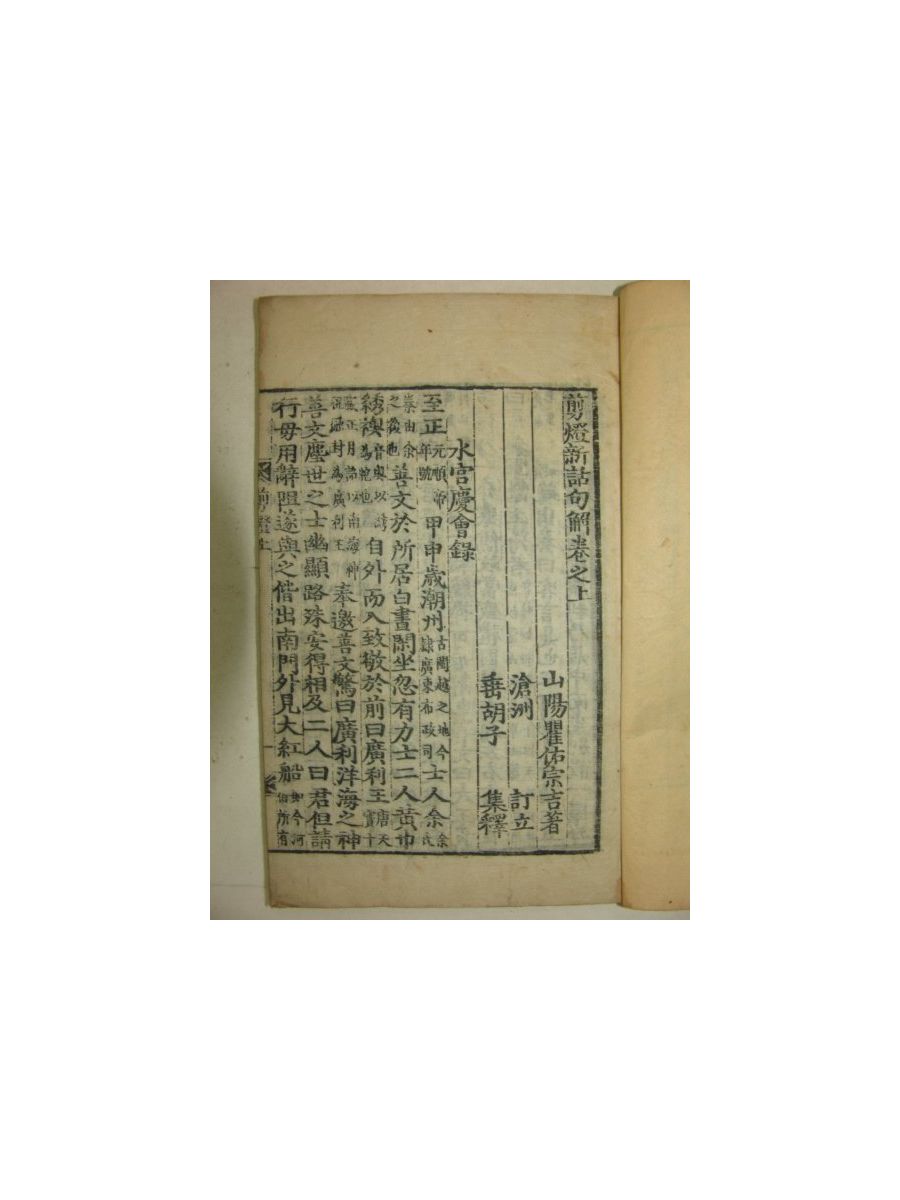 剪燈新話句解卷之上
山陽瞿佑宗吉著
滄洲 訂立
垂胡子 集釋
水宮慶會錄
至正元順帝年號甲申歲潮州古閩越之地今隸廣東布政司士人余余氏
秦由余之後也善文於所居白晝閑坐忽有力士二人黃巾
綉襖音奧以綉為袍也自外而入致敬於前曰廣利王唐天寶十
載正月詔以南海神祝融封為廣利王奉邀善文驚曰廣利洋海之神
善文塵世之士幽顯路殊安得相及二人曰君但請
行毋用辭阻遂與之偕出南門外見大紅船如今河伯所有
剪燈上 一